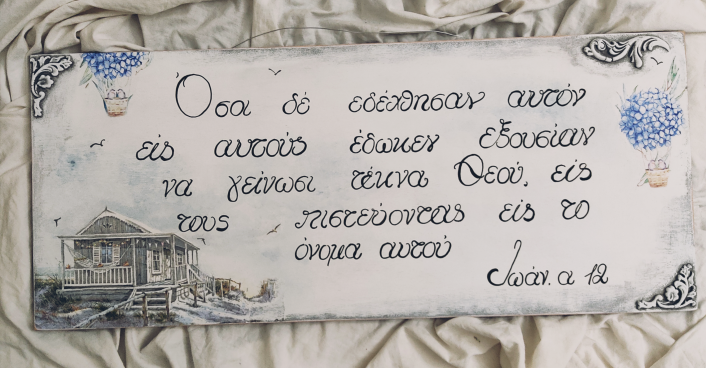 Όσοι δέ εδέχθησαν αυτόν
εις αυτούς έδωκεν εξουσίαν
να γείνωσι τέκνα Θεού, είς
τους πιστεύοντας εις το
όνομα αυτού
Ιωάν. α 12